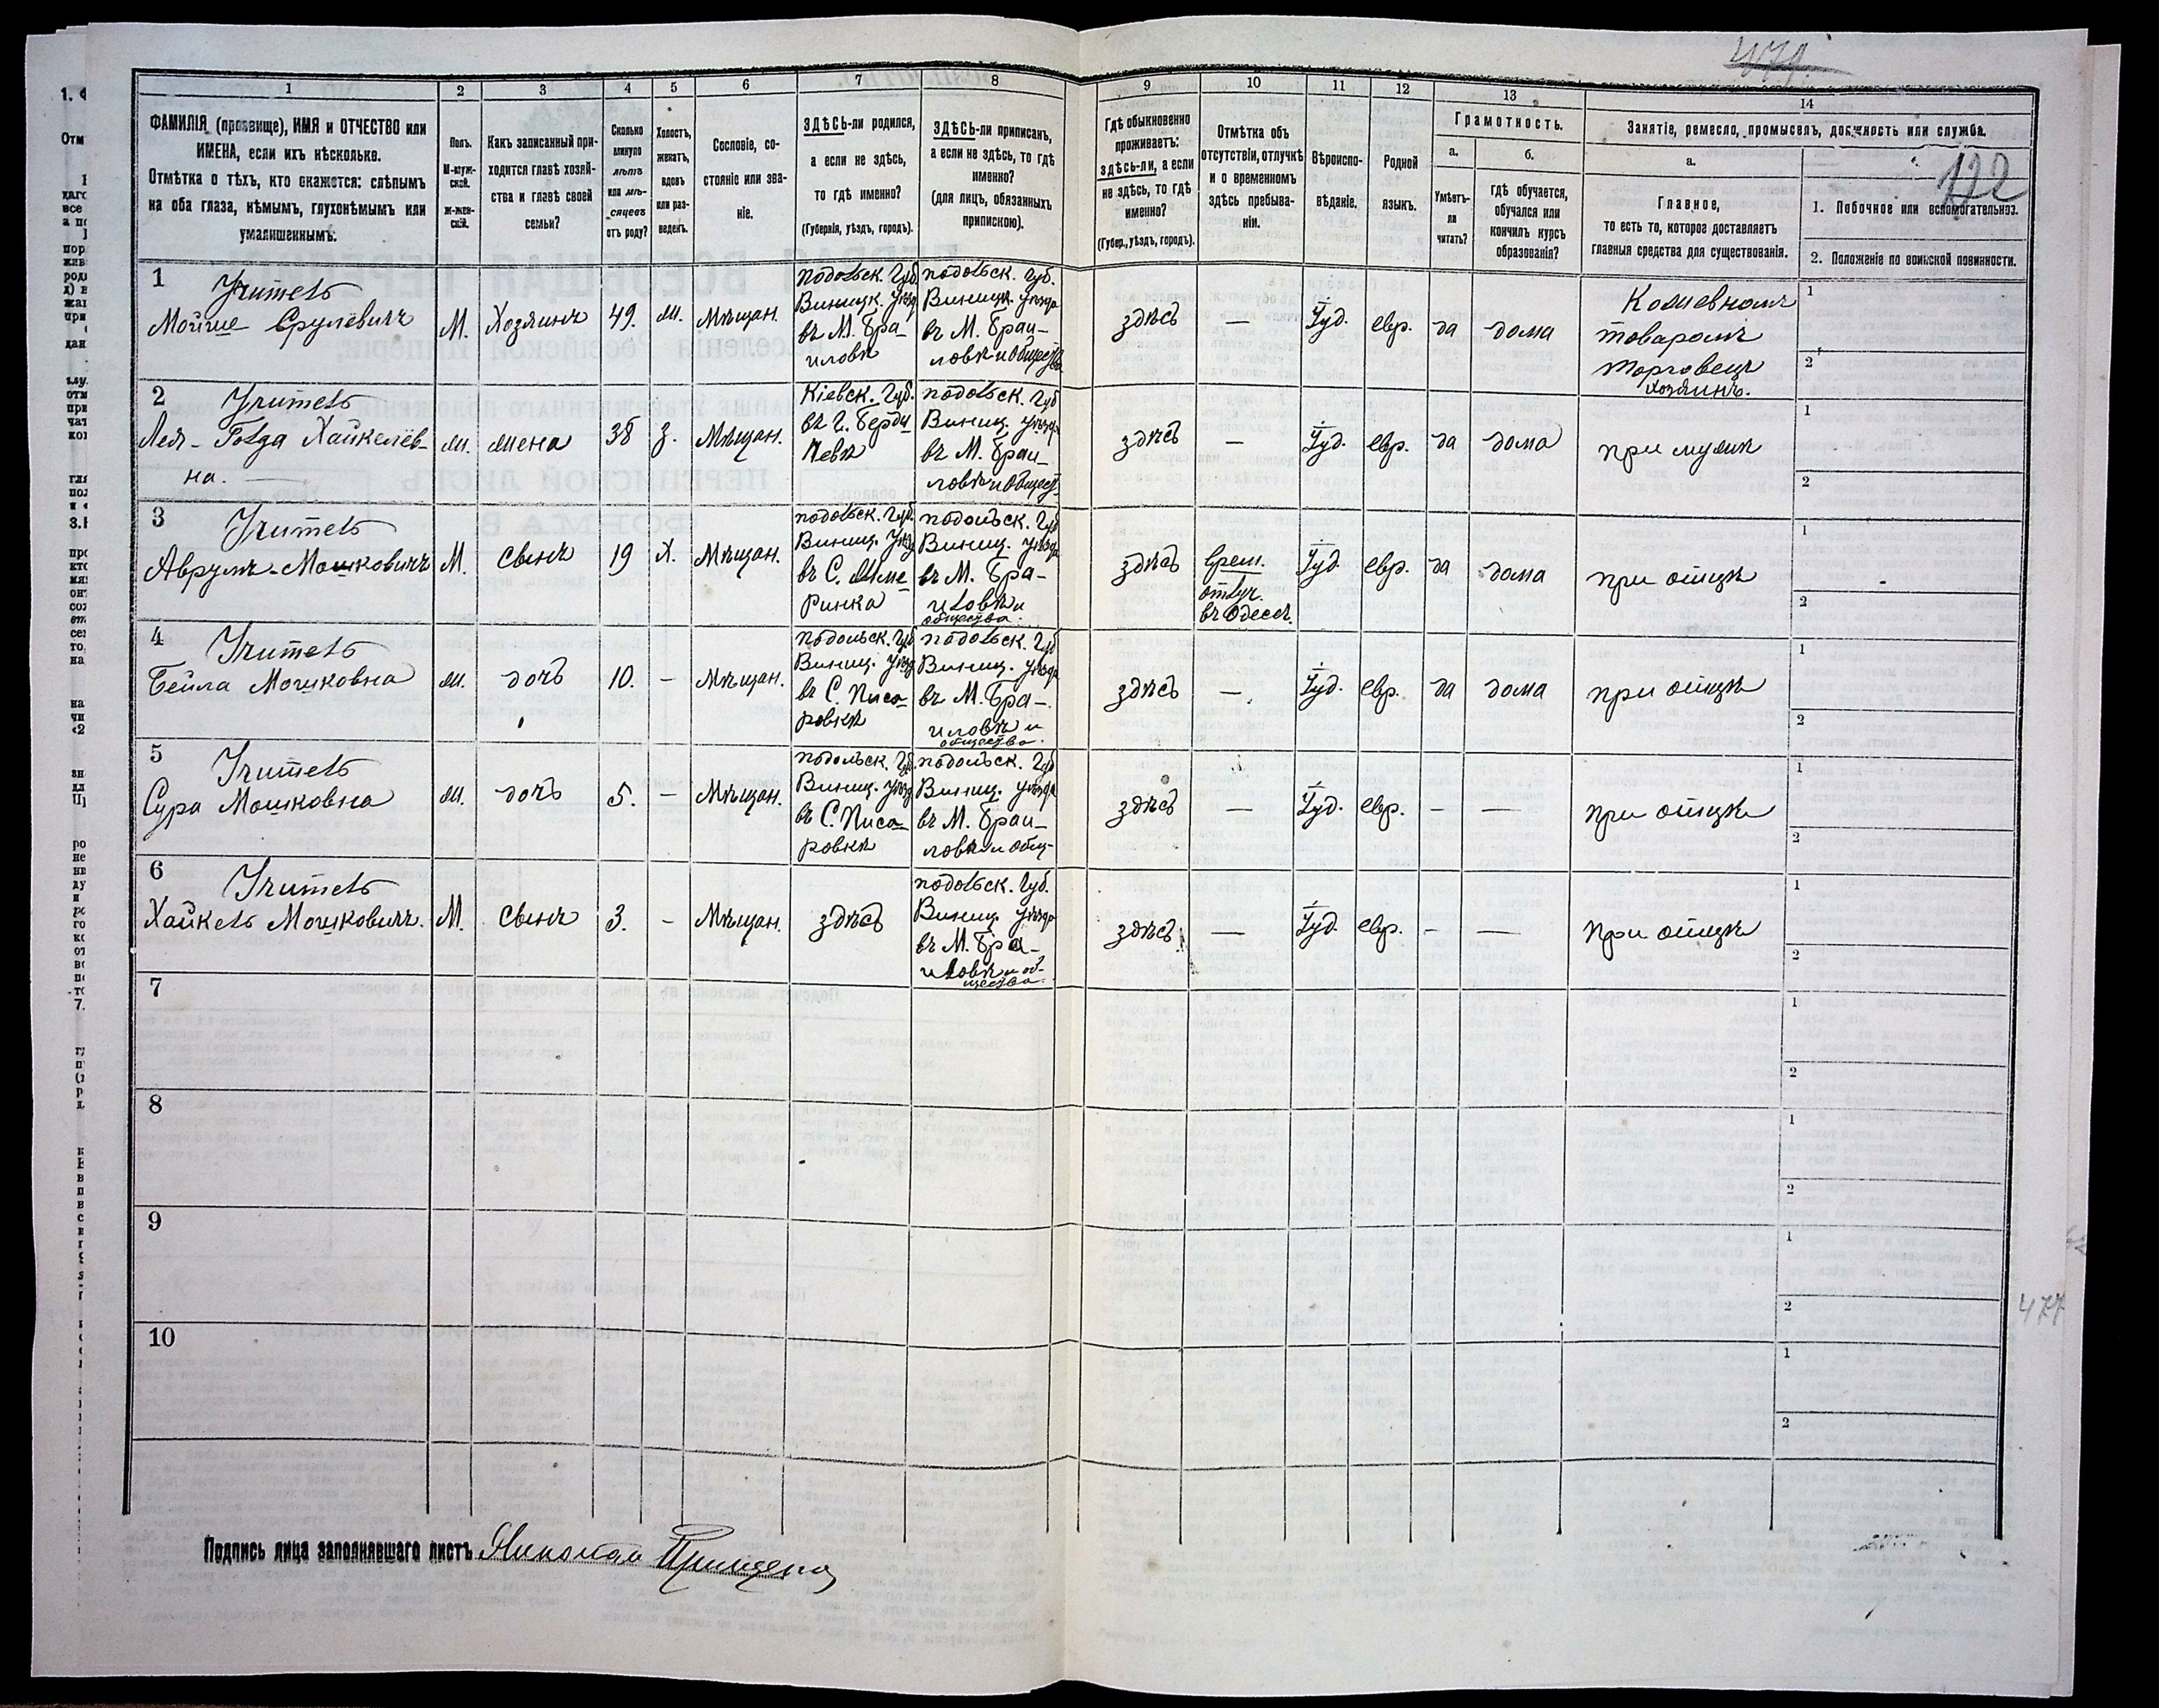 479.
122
1 2 3 4 5 6 7 8 9 10 11 12 13 14
ФАМИЛІЯ (прозвище), ИМЯ и ОТЧЕСТВО или
ИМЕНА, если ихъ нѣсколько.
Отмѣтка о тѣхъ, кто окажется: слѣпымъ
на оба глаза, нѣмымъ, глухонѣмымъ или
умалишеннымъ.
Полъ.
М-муж-
ской.
Ж-жен-
скій.
Какъ записанный при-
ходится главѣ хозяй-
ства и главѣ своей
семьи?
Сколько
минуло
лѣтъ
или мѣ-
сяцевъ
отъ роду?
Холостъ,
женатъ,
вдовъ
или раз-
веденъ.
Сословіе, со-
стояніе или зва-
ніе.
ЗДѢСЬ-ли родился,
а если не здѣсь,
то гдѣ именно?
(Губернія, уѣздъ, городъ).
ЗДѢСЬ-ли приписанъ,
а если не здѣсь, то гдѣ
именно?
(для лицъ, обязанныхъ
припискою).
Гдѣ обыкновенно
проживаетъ:
здѣсь-ли, а если
не здѣсь, то гдѣ
именно?
(Губер., уѣздъ, городъ).
Отмѣтка объ
отсутствіи, отлучкѣ
и о временномъ
здѣсь пребыва-
ніи.
Вѣроиспо-
вѣданіе.
Родной
языкъ.
Грамотность.
а.
Умѣетъ-
ли
читать?
б.
гдѣ обучается,
обучался или
кончилъ курсъ
образованія?
Занятіе, ремесло, промыселъ, должность или служба.
а.
Главное,
то есть то, которое доставляетъ
главныя средства для существованія.
1. Побочное или вспомогательное.
2. Положеніе по воинской повинности.
1
Мойше Срулевичъ
М.
Хозяинъ
49.
Мѣщан.
Подольск. Губ.
въ М. Бра
иловѣ
подольск. Губ.
въ М. Браи-
ловѣ и общества
здѣсь
—
Іуд.
евр.
да
дома
Кожевномъ
товаромъ
торговецъ
хозяинъ.
1
2
2
Хайкелёв-
на.
жена
38
з.
Мѣщан.
Кіевск. Губ.
въ г. Берди
чевѣ
подольск. Губ
Виниц. уѣзда
въ М. Браи-
ловѣ и общест.
здѣсь
—
Іуд.
евр.
да
дома
при мужѣ
1
2
3
Аврумъ-Мошковичъ
М.
сынъ
19
Х.
Мѣщан.
подольск. Губ.
Виниц. Уѣзд
въ С. Жме
ринка
подольск. Губ
Виниц. уѣзда
въ М. Бра-
иловѣ и
общества.
здѣсь
врем.
отлуч.
въ Одесѣ.
Іуд.
евр.
да
дома
при отцѣ
1
2
4
Бейла Мошковна
ж.
дочь
10.
-
Мѣщан.
подольск. Губ
Виниц. Уѣзд
въ С. Писа-
ровкѣ
подольск. Губ
Виниц. уѣзда
въ М. Бра-
иловѣ и
общества.
здѣсь
—
Іуд.
евр.
да
дома
при отцѣ
1
2
5
Сура Мошковна
ж.
дочь
5.
-
Мѣщан.
подольск. Губ.
Виниц. уѣзд
въ С. Писа-
ровкѣ
подольск. Губ
Виниц. уѣзда
въ М. Браи-
ловѣ и общ-
здѣсь
—
Іуд.
евр.
-
—
при отцѣ
1
2
6
Хайкель Мошковичъ.
М.
сынъ
3.
-
Мѣщан.
здѣсь
подольск. Губ.
Виниц. уѣзда
въ М. Бра-
иловѣ и об-
щества.
здѣсь.
—
Іуд.
евр.
-
—
при отцѣ
1
2
7
1
2
8
1
2
9
1
2
10
1
2
477
Подпись лица заполнявшаго листъ